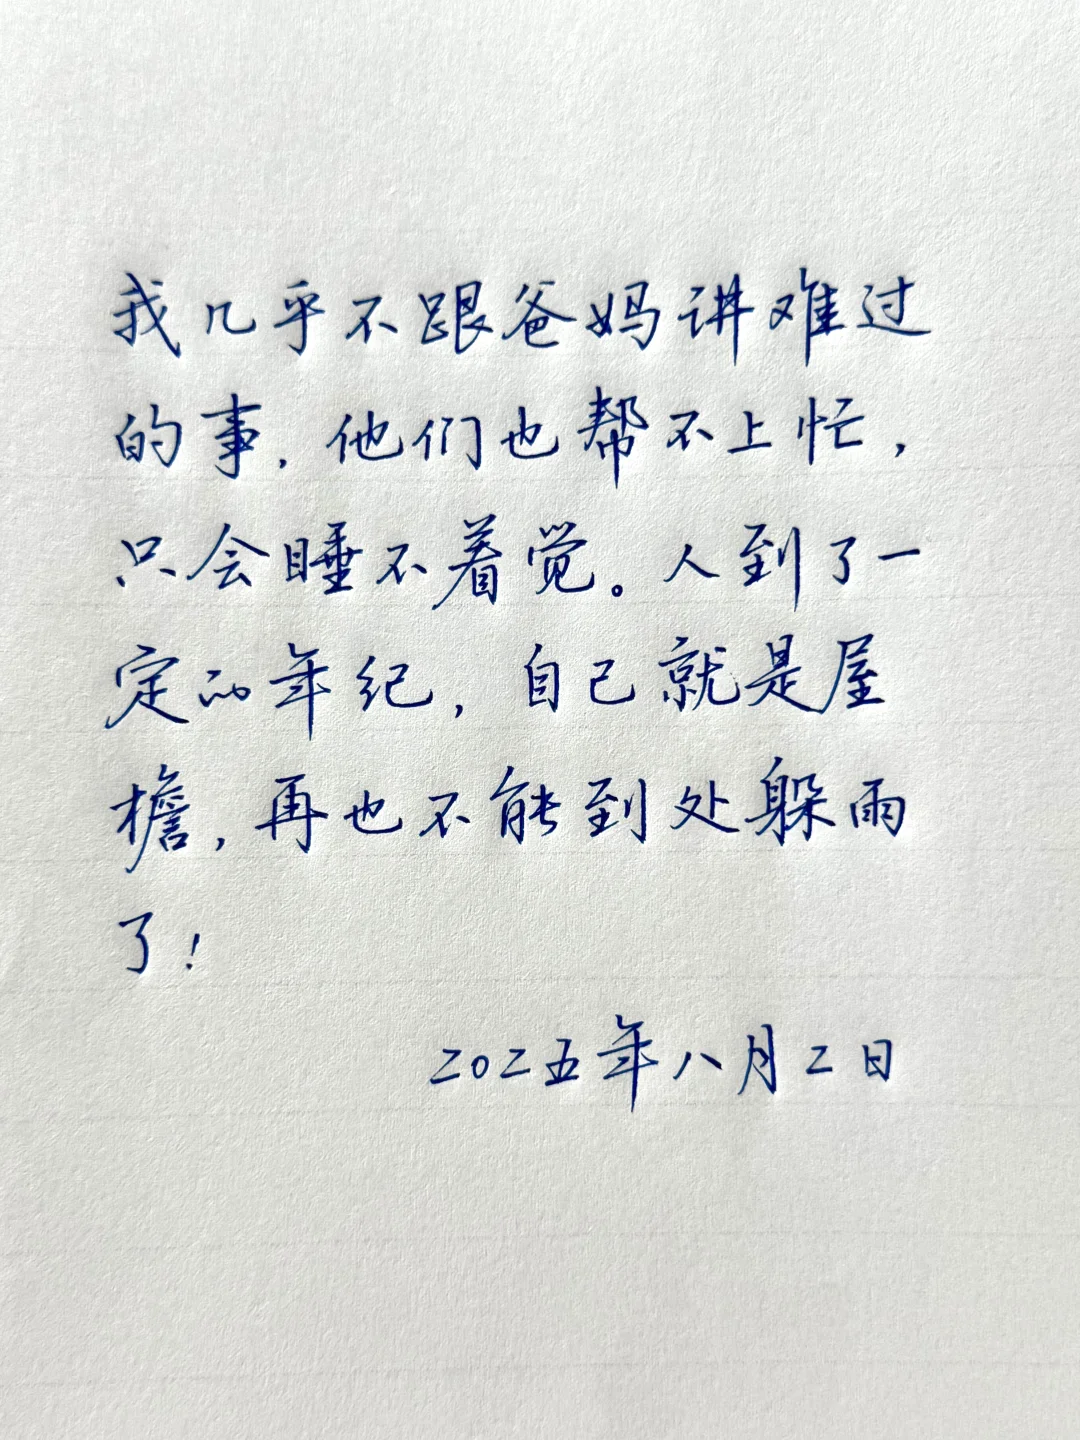 我几乎不跟爸妈讲难过
的事，他们也帮不上忙，
只会睡不着觉。人到了一
定的年纪，自己就是屋
檐，再也不能到处躲雨
了！
2025年八月二日